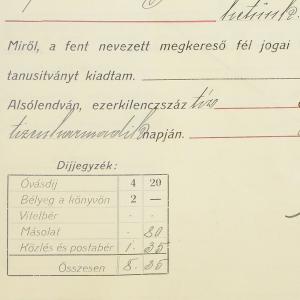 hetünk.
Miről, a fent nevezett megkereső fél jogai
tanusitványt kiadtam.
Alsólendván, ezerkilenczszáz tiz
tizenharmadik napján.
Díjjegyzék:
Óvásdij 4 20
Bélyeg a könyvön 2 —
Vitelbér - -
Másolat - 80
Közlés és postabér 1. 35
Összesen 8. 35